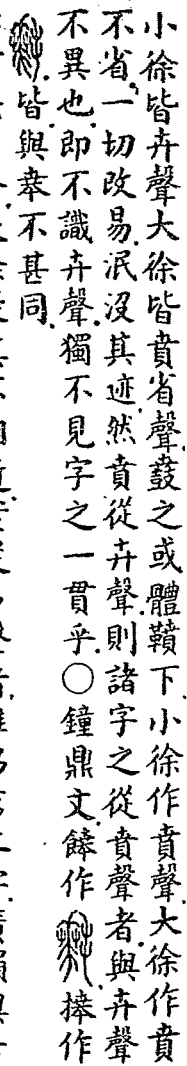 小徐皆卉聲大徐皆賁省聲鼖之或體鞼下小徐作賁聲大徐作賁
不省一切改易泯沒其迹然賁從卉聲則諸字之從賁聲者與卉聲
不異也即不識卉聲獨不見字之一貫乎○鐘鼎文餴作
捧作
皆與𠦪不甚同